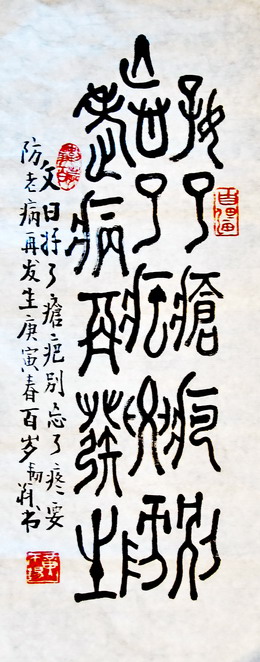 好了瘡疤別
忘了疼要防
老病再發生
文曰好了瘡疤別忘了疼要
防老病再发生庚寅春百岁书